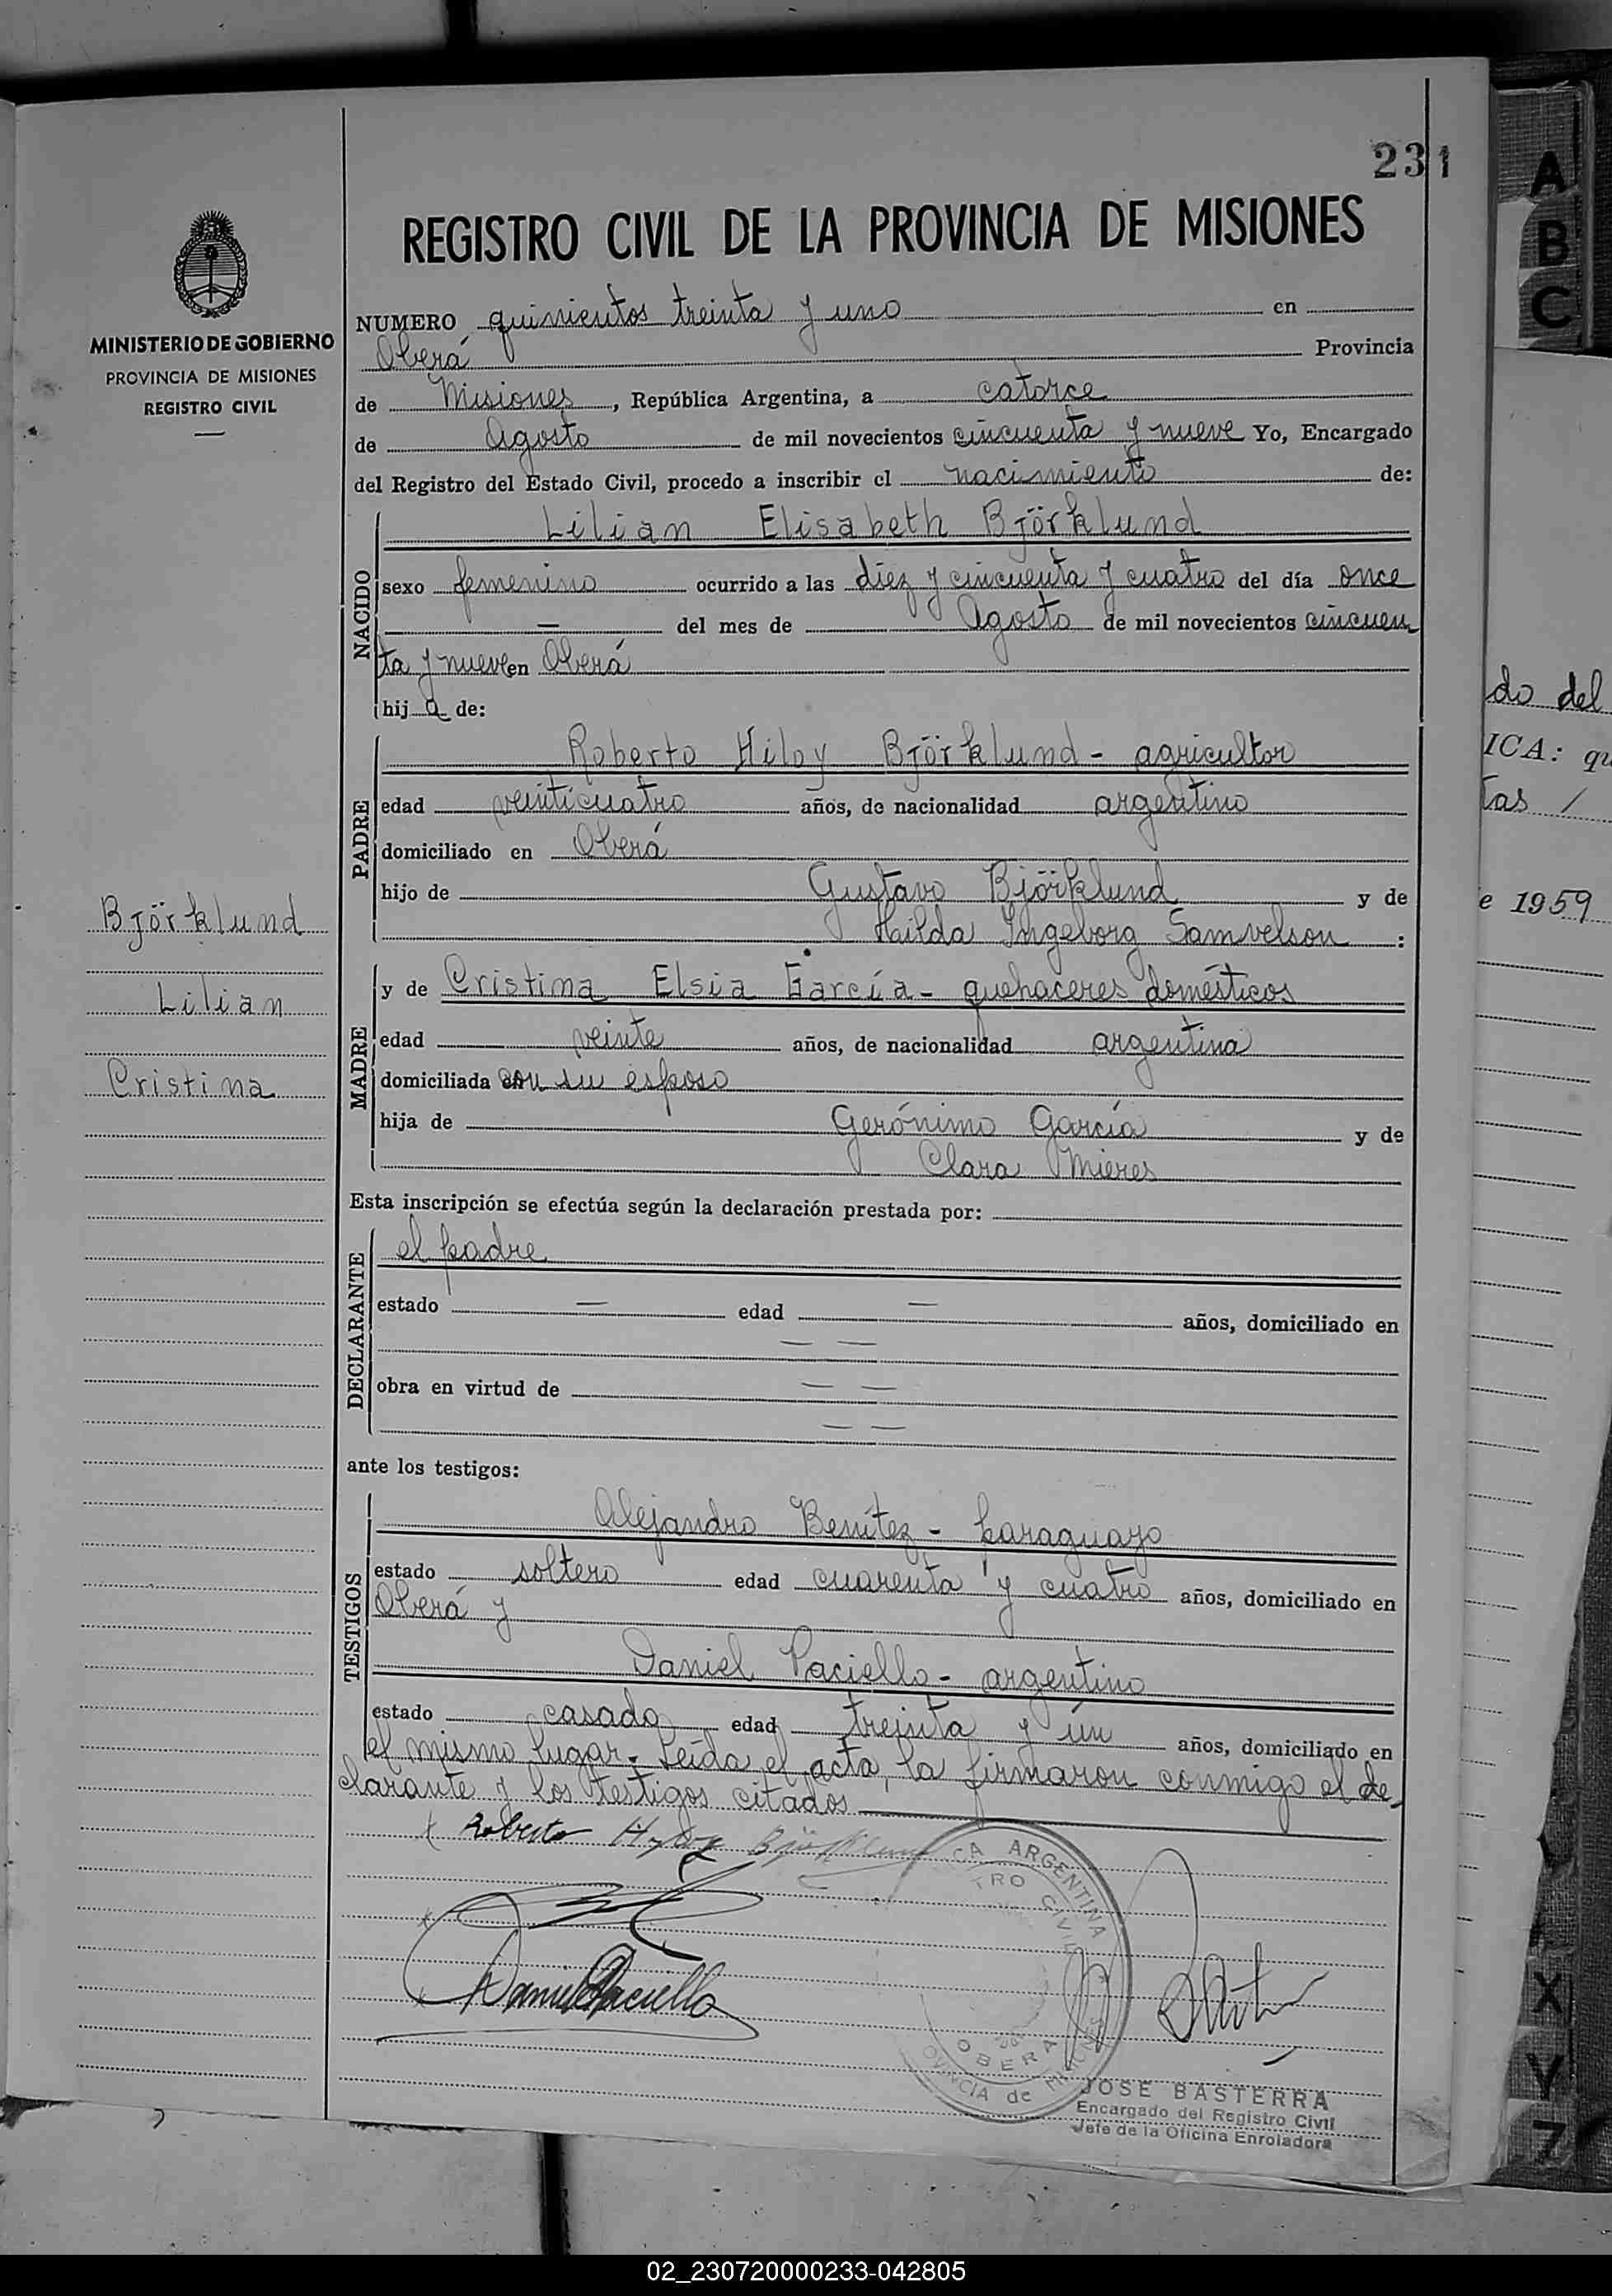 231
REGISTRO CIVIL DE LA PROVINCIA DE MISIONES
MINISTERIO DE GOBIERNO
PROVINCIA DE MISIONES
REGISTRO CIVIL
NUMERO quinientos treinta y uno en
Oberá Provincia
de Misiones, República Argentina, a catorce
de Agosto de mil novecientos cincuenta y nueve Yo, Encargado
del Registro del Estado Civil, procedo a inscribir el nacimiento de:
NACIDO
Lilian Elisabeth Björklund
sexo femenino ocurrido a las diez y cincuenta y cuatro del día once
— del mes de Agosto de mil novecientos cincuen
ta y nueve en Oberá
hija de:
PADRE
Roberto Hiloy Björklund - agricultor
edad veinticuatro años, de nacionalidad argentino
domiciliado en Oberá
hijo de Gustavo Björklund y de
Hailda Ingeborg Samvelson :
Björklund
Lilian
Cristina
MADRE
y de Cristina Elsia García - quehaceres domésticos
edad veinte años, de nacionalidad argentina
domiciliada con su esposo
hija de Gerónimo García y de
Clara Mieres
Esta inscripción se efectúa según la declaración prestada por:
DECLARANTE
el padre
estado — edad — años, domiciliado en
— —
obra en virtud de — —
— —
ante los testigos:
TESTIGOS
Alejandro Benítez - paraguayo
estado soltero edad cuarenta y cuatro años, domiciliado en
Oberá y
Daniel Paciello - argentino
estado casado edad treinta y un años, domiciliado en
el mismo lugar. Leída el acta, la firmaron conmigo el de-
clarante y los testigos citados
x Roberto Hyloy Björklund
Daniel Paciello
CA ARGENTINA
TRO CIVIL
OBERA
OVINCIA de MISIONES
JOSE BASTERRA
Encargado del Registro Civil
Jefe de la Oficina Enroladora
A
B
C
X
Y
Z
do del
ICA: qu
tas /
e 1959
02_230720000233-042805